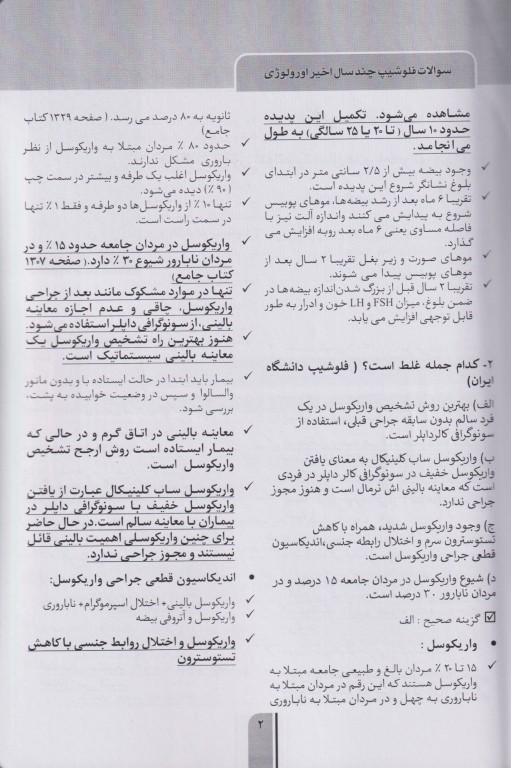 سوالات فلوشیپ چند سال اخیر اورولوژی
مشاهده می‌شود. تکمیل این پدیده
حدود ۱۰ سال ( تا ۲۰ یا ۲۵ سالگی) به طول
می انجامد.
✓ وجود بیضه بیش از ۲/۵ سانتی متر در ابتدای
بلوغ نشانگر شروع این پدیده است.
✓ تقریبا ۶ ماه بعد از رشد بیضه‌ها، موهای پوبیس
شروع به پیدایش می کنند واندازه آلت نیز با
فاصله مساوی یعنی ۶ ماه بعد روبه افزایش می
گذارد.
✓ موهای صورت و زیر بغل تقریبا ۲ سال بعد از
موهای پوبیس پیدا می شوند.
✓ تقریبا ۲ سال قبل از بزرگ شدن‌اندازه بیضه‌ها در
ضمن بلوغ، میزان FSH و LH خون و ادرار به طور
قابل توجهی افزایش می یابد.
۲- کدام جمله غلط است؟ ( فلوشیپ دانشگاه
ایران)
الف) بهترین روش تشخیص واریکوسل در یک
فرد سالم بدون سابقه جراحی قبلی، استفاده از
سونوگرافی کالردابلر است.
ب) واریکوسل ساب کلینیکال به معنای یافتن
واریکوسل خفیف در سونوگرافی کالر داپلر در فردی
است که معاینه بالینی اش نرمال است و هنوز مجوز
جراحی ندارد.
ج) وجود واریکوسل شدید، همراه با کاهش
تستوسترون سرم و اختلال رابطه جنسی،اندیکاسیون
قطعی جراحی واریکوسل است.
د) شیوع واریکوسل در مردان جامعه ۱۵ درصد و در
مردان نابارور ۳۰ درصد است.
☑ گزینه صحیح : الف
• واریکوسل :
✓ ۱۵ تا ۲۰ ٪ مردان بالغ و طبیعی جامعه مبتلا به
واریکوسل هستند که این رقم در مردان مبتلا به
ناباروری به چهل و در مردان مبتلا به ناباروری
ثانویه به ۸۰ درصد می رسد. ( صفحه ۱۳۲۹ کتاب
جامع)
✓ حدود ۸۰ ٪ مردان مبتلا به واریکوسل از نظر
باروری مشکل ندارند.
✓ واریکوسل اغلب یک طرفه و بیشتر در سمت چپ
( ۹۰ ٪) دیده می‌شود.
✓ تنها ۱۰ ٪ از واریکوسل‌ها دو طرفه و فقط ۱ ٪ تنها
در سمت راست است.
✓ واریکوسل در مردان جامعه حدود ۱۵ ٪ و در
مردان نابارور شیوع ۳۰ ٪ دارد.( صفحه ۱۳۰۷
کتاب جامع)
✓ تنها در موارد مشکوک مانند بعد از جراحی
واریکوسل، چاقی و عدم اجازه معاینه
بالینی، از سونوگرافی داپلر استفاده می‌شود.
✓ هنوز بهترین راه تشخیص واریکوسل یک
معاینه بالینی سیستماتیک است.
✓ بیمار باید ابتدا در حالت ایستاده با و بدون مانور
والسالوا و سپس در وضعیت خوابیده به پشت،
بررسی شود.
✓ معاینه بالینی در اتاق گرم و در حالی که
بیمار ایستاده است روش ارجح تشخیص
واریکوسل است.
✓ واریکوسل ساب کلینیکال عبارت از یافتن
واریکوسل خفیف با سونوگرافی داپلر در
بیماران با معاینه سالم است.در حال حاضر
برای چنین واریکوسلی اهمیت بالینی قائل
نیستند و مجوز جراحی ندارد.
• اندیکاسیون قطعی جراحی واریکوسل:
✓ واریکوسل بالینی+ اختلال اسپرموگرام+ ناباروری
✓ واریکوسل و آتروفی بیضه
✓ واریکوسل و اختلال روابط جنسی با کاهش
تستوسترون
۲